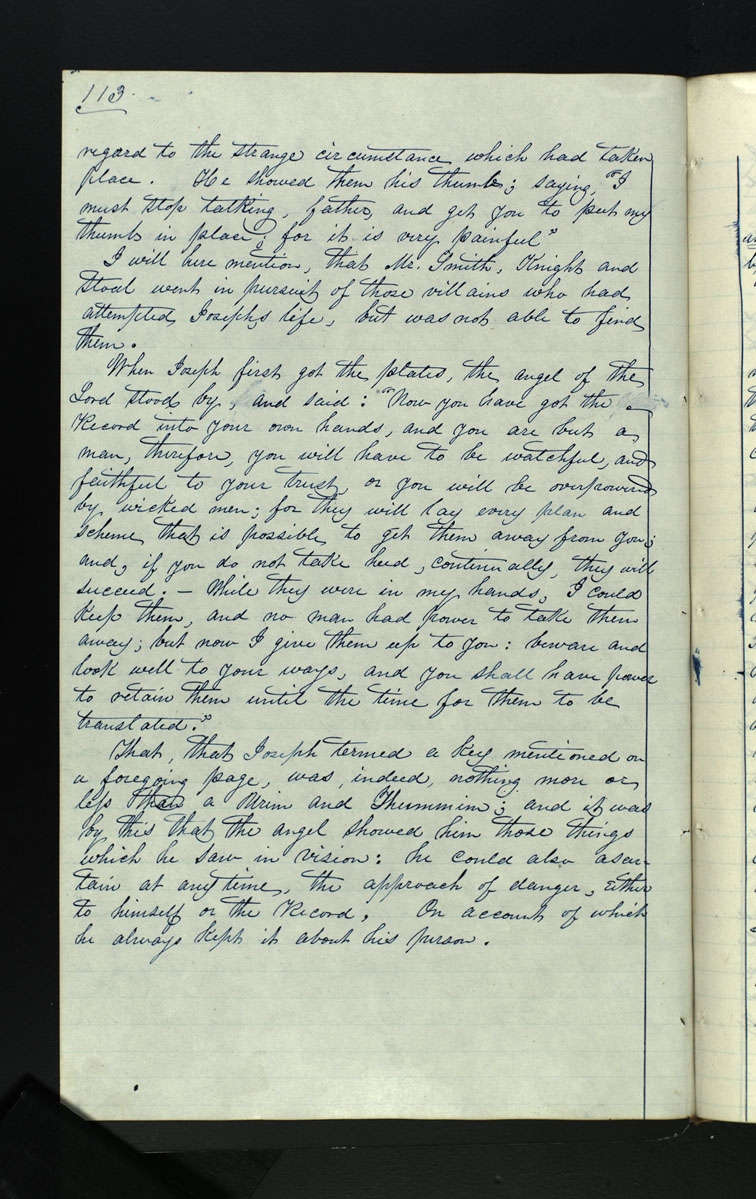 113.
regard to the strange circumstance which had taken
place. He showed them his thumb; saying, "I
must stop talking, father, and get you to put my
thumb in place; for it is very painful"
I will here mention, that Mr. Smith, Knight and
Stoal went in pursuit of those villains who had
attempted Josephs life, but was not able to find
them.
When Joseph first got the plates, the angel of the
Lord stood by, and said: "Now you have got the
Record into your own hands, and you are but a
man, therefore, you will have to be watchful, and
faithful to your trust, or you will be overpowered
by wicked men; for they will lay every plan and
scheme that is possible to get them away from you;
and, if you do not take heed, continually, they will
succeed. — While they were in my hands, I could
keep them, and no man had power to take them
away; but now I give them up to you: beware and
look well to your ways, and you shall have power
to retain them until the time for them to be
translated."
That, that Joseph termed a key mentioned on
a foregoing page, was, indeed, nothing more or
less than a Urim and Thummim; and it was
by this that the angel showed him those things
which he saw in vision: he could also ascer-
tain at any time, the approach of danger, either
to himself or the Record. On account of which
he always kept it about his person.